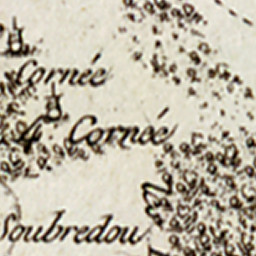 Cornée
Cornée
Soubredou